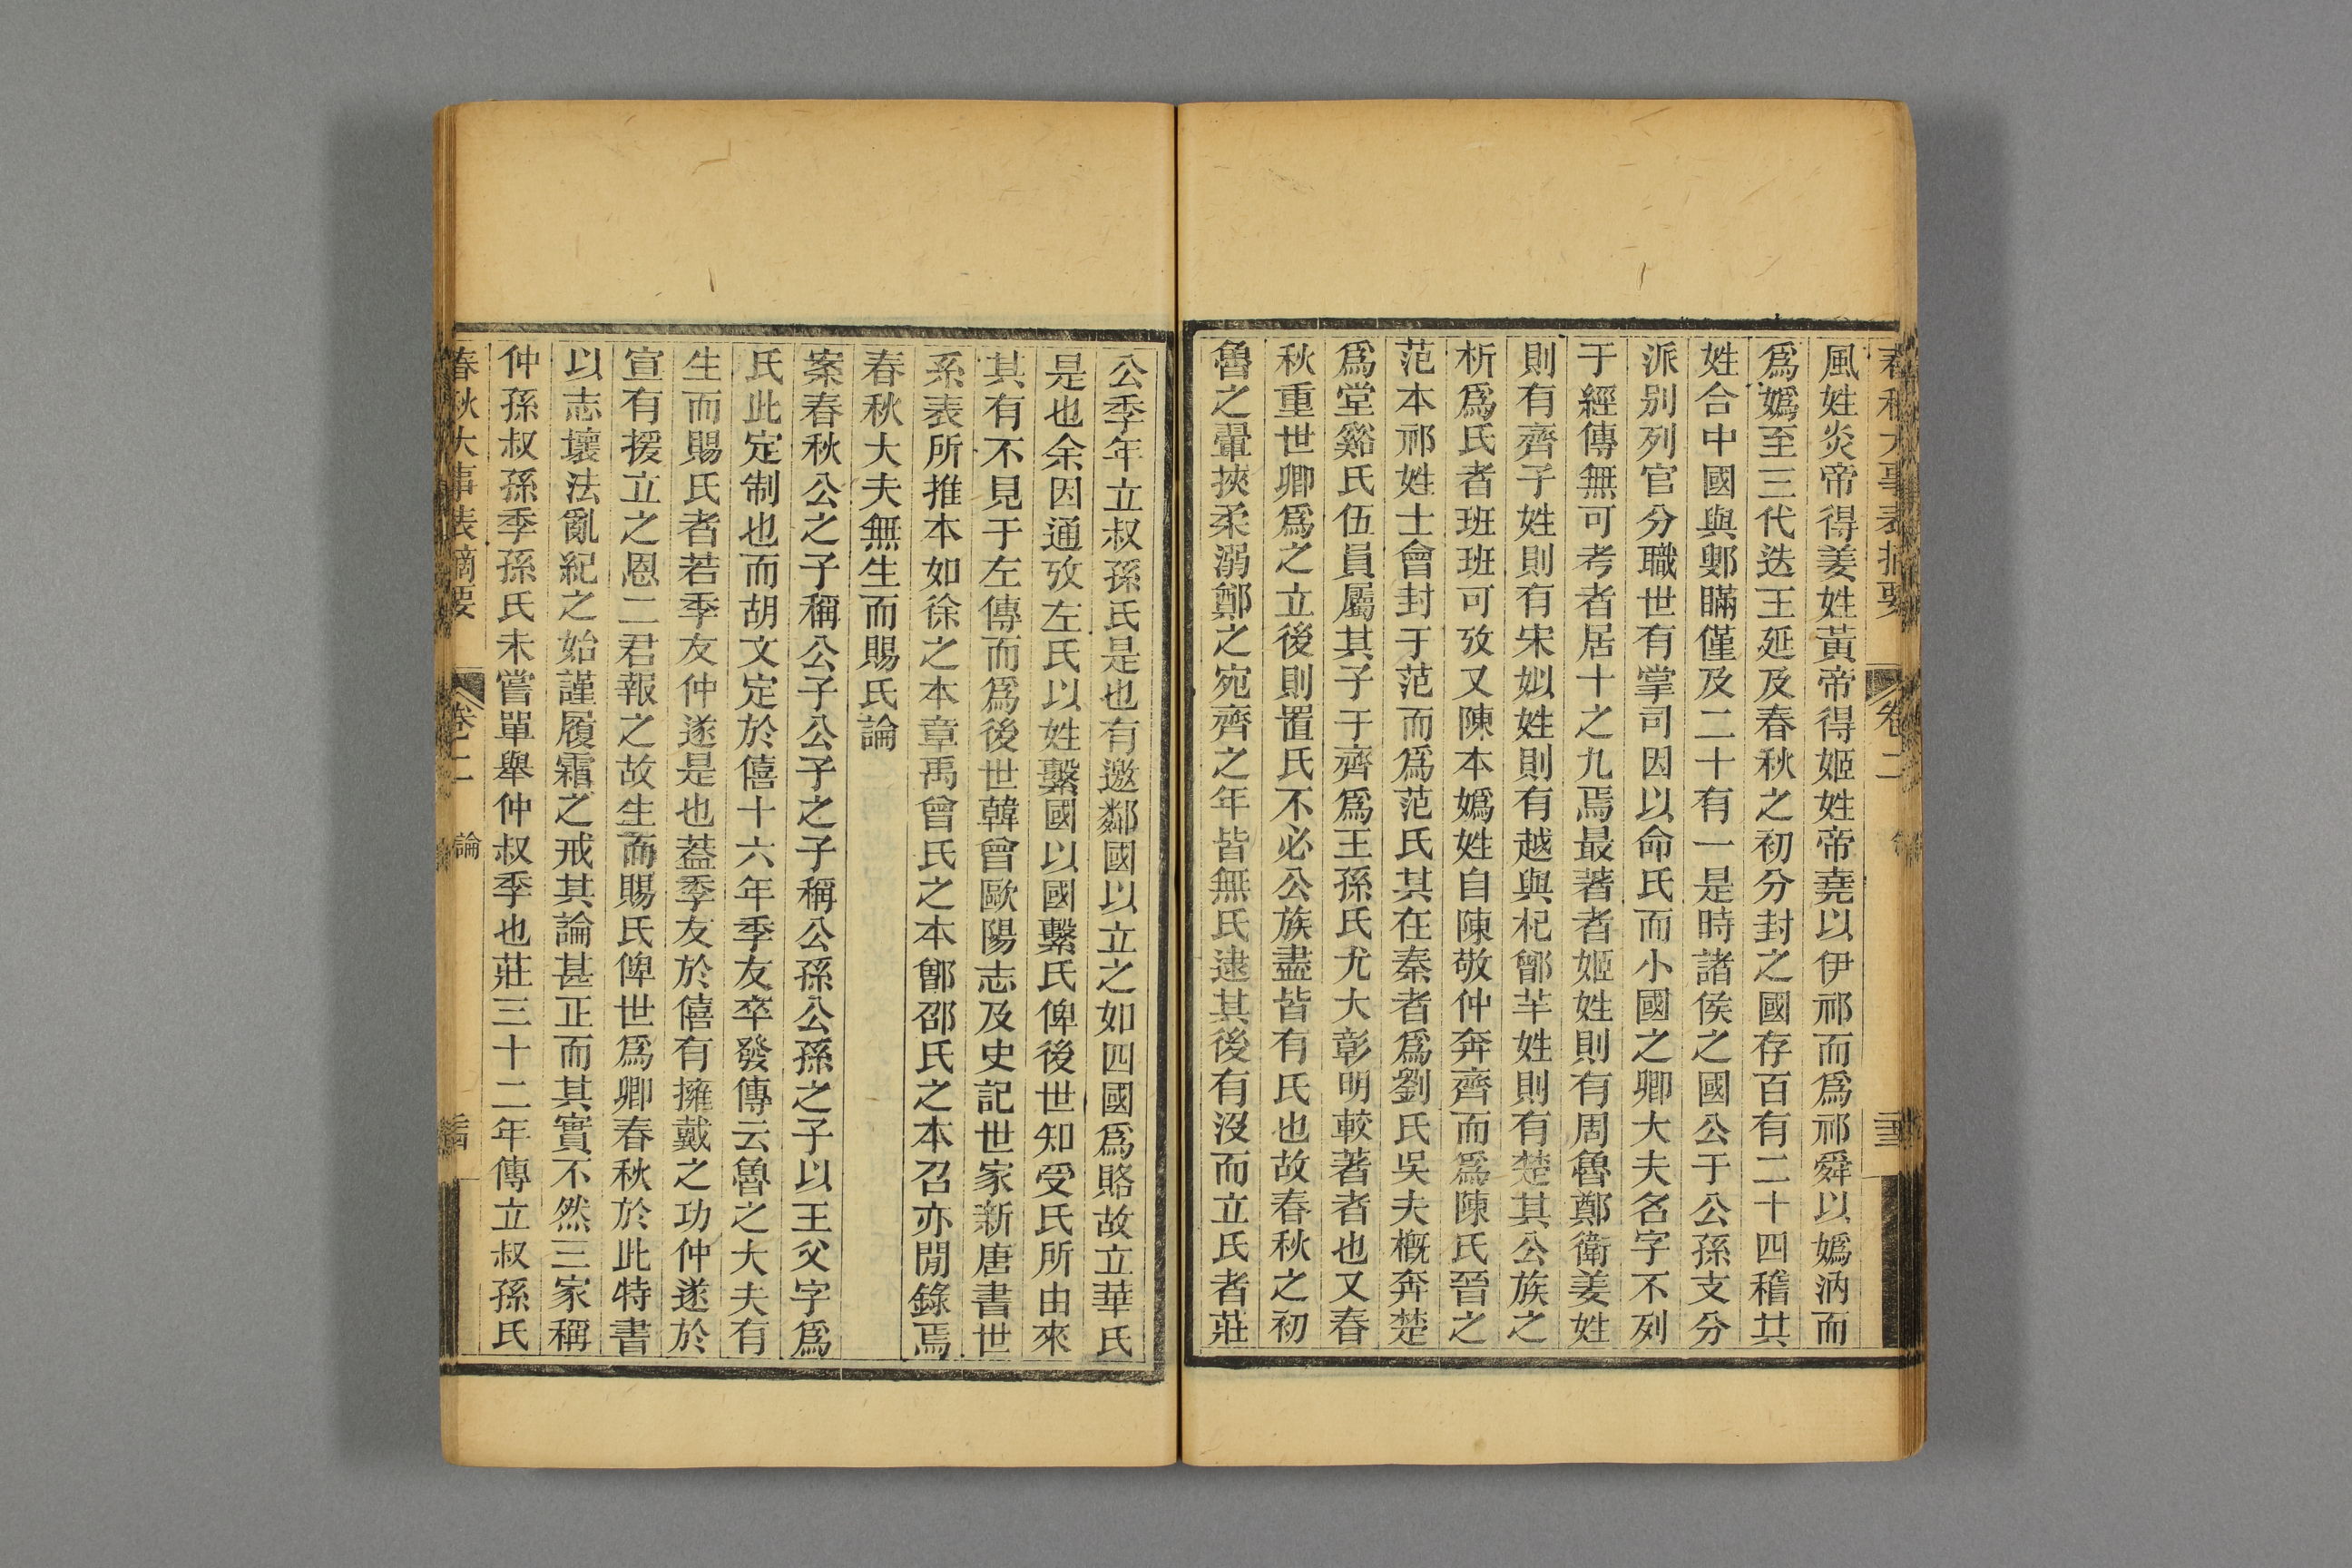 春秋大事表摘要 卷二
風姓炎帝得姜姓黃帝得姬姓帝堯以伊祁而爲祁舜以嬀汭而
爲嬀至三代迭王延及春秋之初分封之國存百有二十四稽其
姓合中國與鄋瞞僅及二十有一是時諸侯之國公于公孫支分
派別列官分職世有掌司因以命氏而小國之卿大夫名字不列
于經傳無可考者居十之九焉最著者姬姓則有周魯鄭衛姜姓
則有齊子姓則有宋姒姓則有越與杞鄫芈姓則有楚其公族之
析爲氏者班班可攷又陳本嬀姓自陳敬仲奔齊而爲陳氏晉之
范本祁姓士會封于范而爲范氏其在秦者爲劉氏吳夫槪奔楚
爲堂谿氏伍員屬其子于齊爲王孫氏尤大彰明較著者也又春
秋重世卿爲之立後則置氏不必公族盡皆有氏也故春秋之初
魯之翬挾柔溺鄭之宛齊之年皆無氏逮其後有沒而立氏者莊
公季年立叔孫氏是也有邀鄰國以立之如四國爲賂故立華氏
是也余因通攷左氏以姓繫國以國繫氏俾後世知受氏所由來
其有不見于左傳而爲後世韓曾歐陽志及史記世家新唐書世
系表所推本如徐之本章禹曾氏之本鄫邵氏之本召亦閒錄焉
春秋大夫無生而賜氏論
案春秋公之子稱公子公子之子稱公孫公孫之子以王父字爲
氏此定制也而胡文定於僖十六年季友卒發傳云魯之大夫有
生而賜氏者若季友仲遂是也葢季友於僖有擁戴之功仲遂於
宣有援立之恩二君報之故生而賜氏俾世爲卿春秋於此特書
以志壞法亂紀之始謹履霜之戒其論甚正而其實不然三家稱
仲孫叔孫季孫氏未嘗單舉仲叔季也莊三十二年傳立叔孫氏
春秋大事表摘要 卷二 論